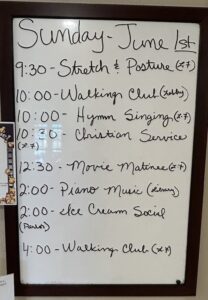 Sunday - June 1st
9:30 - Stretch & Posture (x7)
10:00 - Walking Club (Lobby)
10:00 - Hymn Singing (x7)
10:30 - Christian Service
(x7)
12:30 - Movie Matinee (x7)
2:00 - Piano Music (dining)
2:00 - Ice Cream Social
4:00 - Walking Club (x7)